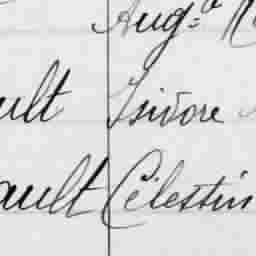 Augᵗᵉ
ult Isidore
ault Célestin